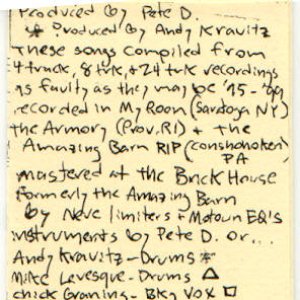 Produced by Pete D.
* Produced by Andy Kravitz
These songs compiled from
4 track, 8 trk, + 24 trk recordings
as faulty as they may be '95-'99
recorded in My Room (Saratoga NY)
the Armory (Prov, RI) + the
Amazing Barn RIP (Conshohoken)
PA
mastered at the Brick House
formerly the Amazing Barn
by Neve limiters + Motown EQ's
instruments by Pete D. or...
Andy Kravitz - Drums *
Mike Levesque - Drums △
Chick Graning - Bkg Vox □